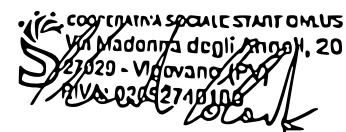 COOPERATIVA SOCIALE START ONLUS
Via Madonna degli Angeli, 20
27029 - Vigevano (PV)
P.IVA: